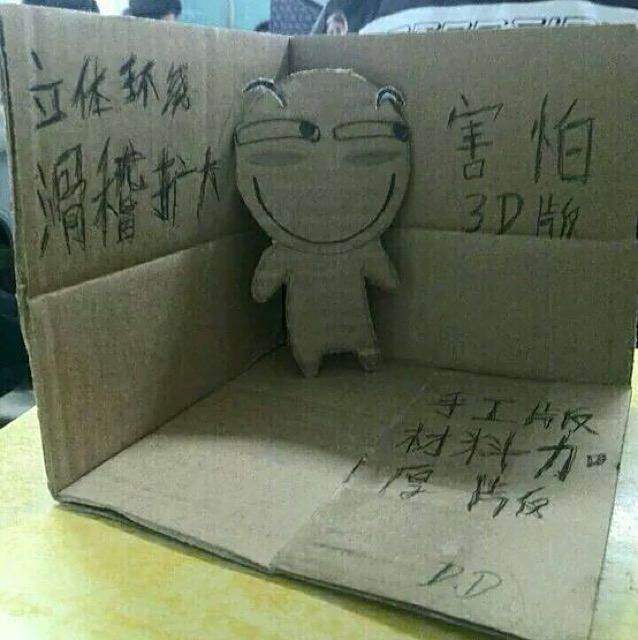 立体环绕
滑稽扩大
害怕
3D版
手工片反
材料加
厚片反
DD